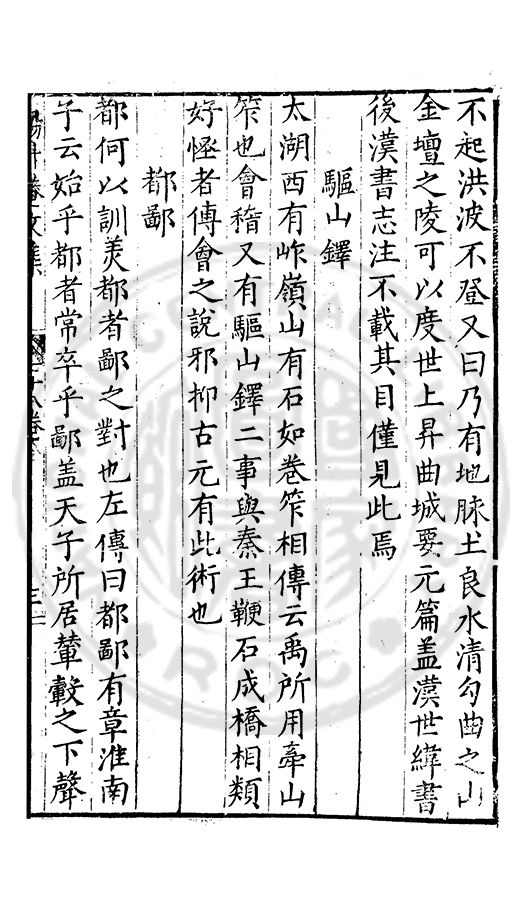 不起洪波不登又曰乃有地脉土良水清勾曲之山
金壇之陵可以度世上昇曲城要元篇盖漢世緯書
後漢書志注不載其目僅見此焉
驅山鐸
太湖西有岞嶺山有石如卷笮相傳云禹所用牽山
笮也會稽又有驅山鐸二事與秦王鞭石成橋相類
好怪者傳會之說邪抑古元有此術也
都鄙
都何以訓美都者鄙之對也左傳曰都鄙有章淮南
子云始乎都者常卒乎鄙盖天子所居輦轂之下聲